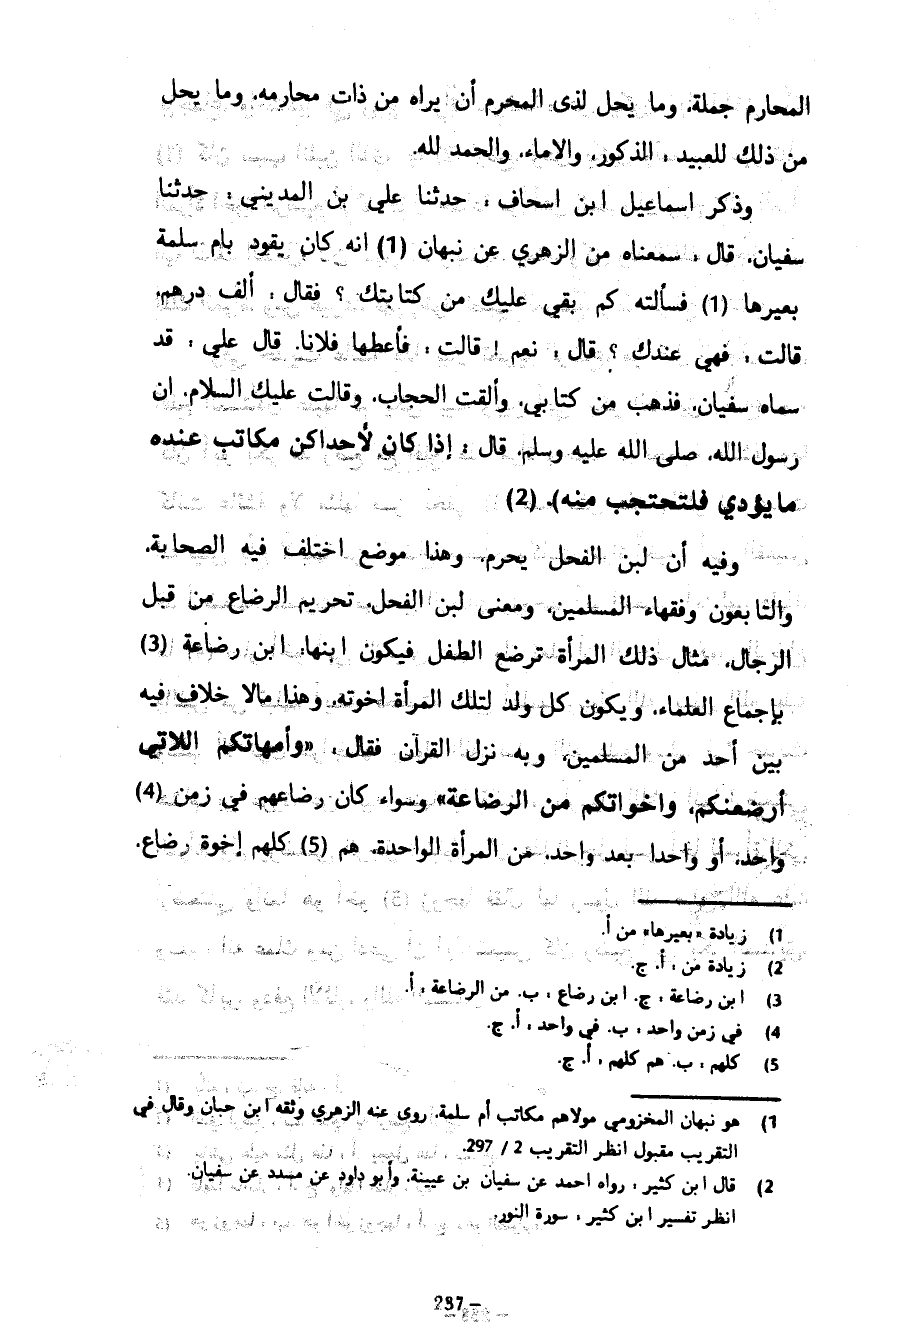 المحارم جملة، وما يحل لذى المحرم أن يراه من ذات محارمه، وما يحل
من ذلك للعبيد ، الذكور، والاماء، والحمد لله.
وذكر اسماعيل ابن اسحاف ، حدثنا علي بن المديني ، حدثنا
سفيان، قال ، سمعناه من الزهري عن نبهان (1) انه كان يقود بام سلمة
بعيرها (1) فسألته كم بقي عليك من كتابتك ؟ فقال ، ألف درهم،
قالت ، فهي عندك ؟ قال ، نعم ! قالت ، فأعطها فلانا. قال علي ، قد
سماه سفيان، فذهب من كتابي، وألقت الحجاب، وقالت عليك السلام، ان
رسول الله، صلى الله عليه وسلم، قال ، إذا كان لأحداكن مكاتب عنده
ما يؤدي فلتحتجب منه). (2)
وفيه أن لبن الفحل يحرم، وهذا موضع اختلف فيه الصحابة،
والتابعون وفقهاء المسلمين، ومعنى لبن الفحل، تحريم الرضاع من قبل
الرجال، مثال ذلك المرأة ترضع الطفل فيكون ابنها، ابن رضاعة (3)
بإجماع العلماء، ويكون كل ولد لتلك المرأة اخوته، وهذا مالا خلاف فيه
بين أحد من المسلمين، وبه نزل القرآن فقال ، «وأمهاتكم اللاتي
أرضعنكم، واخواتكم من الرضاعة» وسواء كان رضاعهم في زمن (4)
واحد، أو واحدا بعد واحد، من المرأة الواحدة، هم (5) كلهم إخوة رضاع،
1) زيادة «بعيرها» من أ.
2) زيادة من ، أ. ج.
3) ابن رضاعة ، ج. ابن رضاع ، ب. من الرضاعة ، أ.
4) في زمن واحد ، ب. في واحد ، أ. ج.
5) كلهم ، ب. هم كلهم ، أ. ج.
1) هو نبهان المخزومي مولاهم مكاتب أم سلمة، روى عنه الزهري وثقه ابن حبان وقال في
التقريب مقبول انظر التقريب 2 / 297.
2) قال ابن كثير ، رواه احمد عن سفيان بن عيينة، وأبو داود عن مسدد عن سفيان.
انظر تفسير ابن كثير ، سورة النور.
237 –